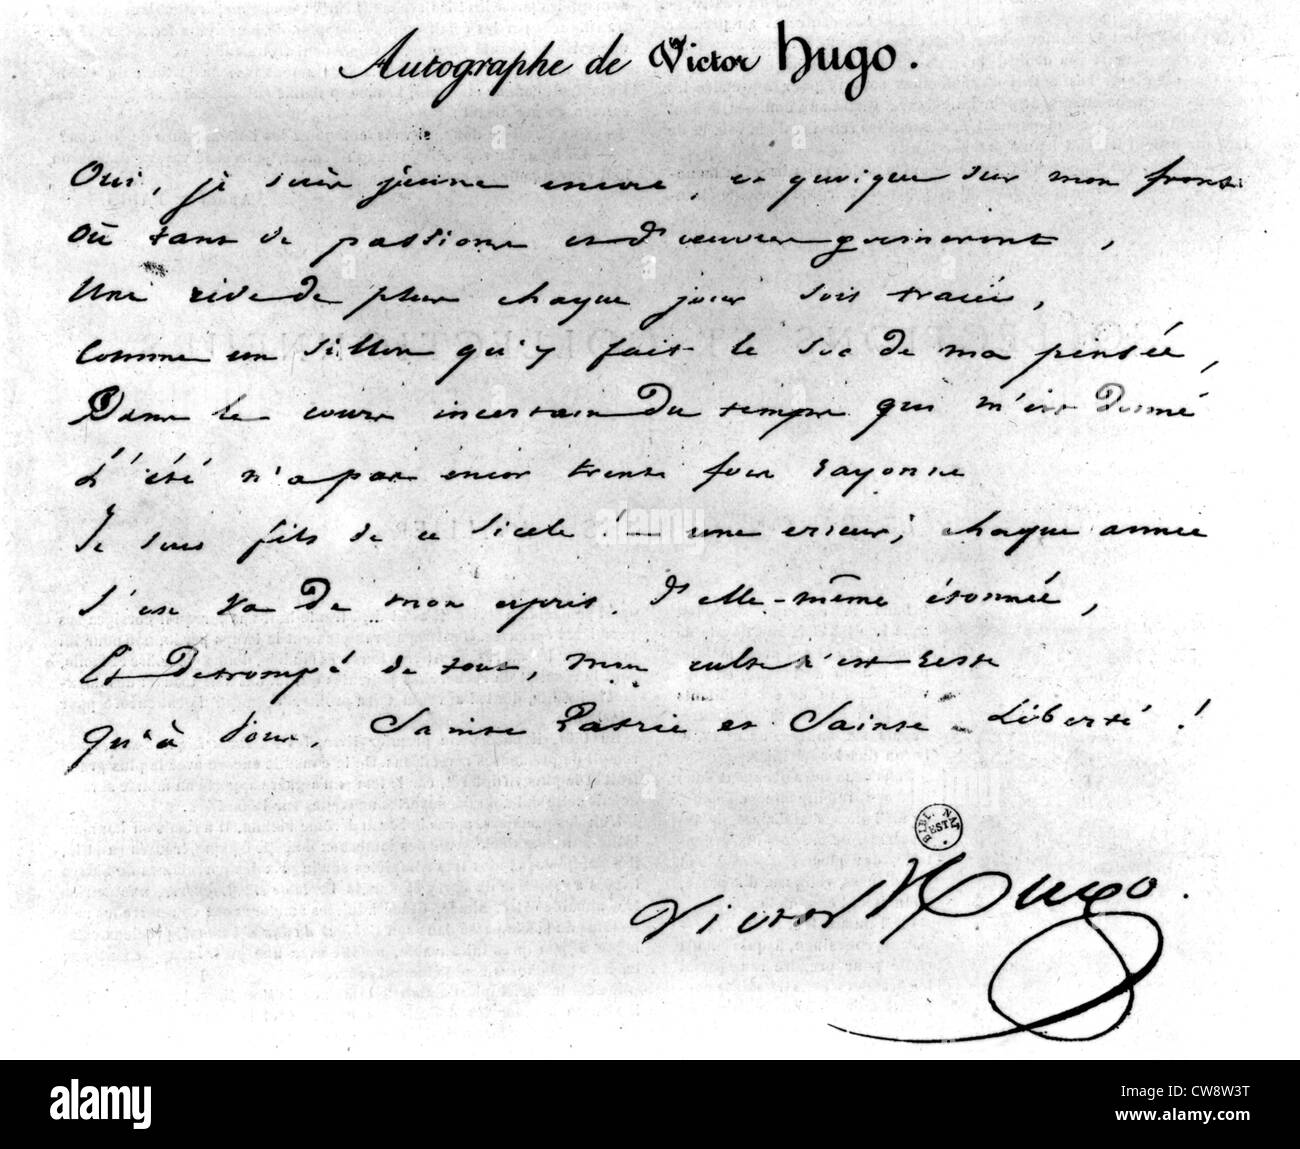 Autographe de Victor Hugo.
Oui, je suis jeune encore, et quoique sur mon front
Où tant de passions et d'œuvres germeront,
Une ride de plus chaque jour soit tracée,
Comme un sillon qu'y fait le soc de ma pensée,
Dans le cours incertain du temps qui m'est donné
L'été n'a pas encor trente fois rayonné
Je suis fils de ce siècle ! une erreur, chaque année
S'en va de mon esprit d'elle-même étonnée,
Et detrompé de tout, mon culte n'est resté
Qu'à vous, Sainte Patrie et Sainte Liberté !
BIBL. NAT
EST.
Victor Hugo.
alamy
Image ID: CW8W3T
www.alamy.com